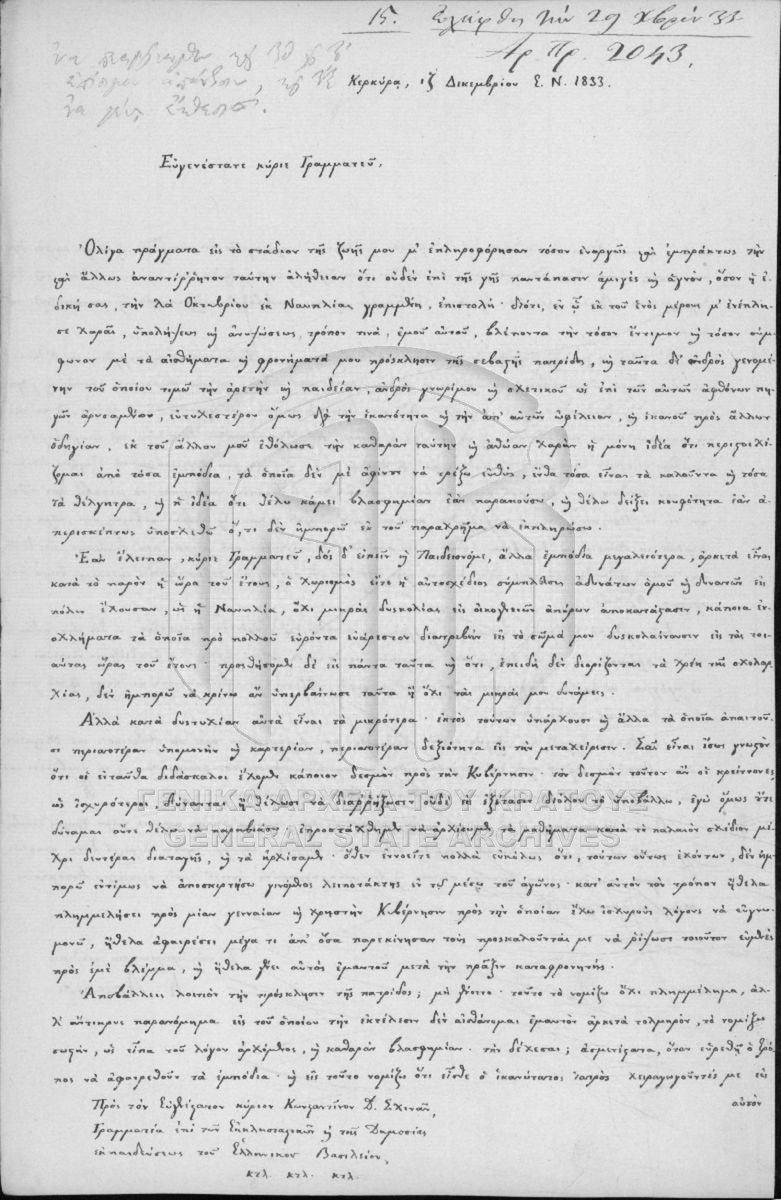 15. Ἐλήφθη τὴν 29 Χβρίου 33
Ἀρ. Πρ. 2043.
Κερκύρᾳ, ιζ Δεκεμβρίου Ε. Ν. 1833.
Εὐγενέστατε κύριε Γραμματεῦ,
Ὀλίγα πράγματα εἰς τὸ στάδιον τῆς ζωῆς μου μ' ἐπληροφόρησαν τόσον ἐναργῶς καὶ ἐμπράκτως τὴν
καὶ ἄλλως ἀναντίῤῥητον ταύτην ἀλήθειαν ὅτι οὐδὲν ἐπὶ τῆς γῆς παντάπασιν ἀμιγὲς καὶ ἁγνὸν, ὅσον ἡ ἐ-
δική σας, τὴν λὰ Ὀκτωβρίου ἐκ Ναυπλίας γραμμένη, ἐπιστολή· διότι, ἐν ᾧ ἐκ τοῦ ἑνὸς μέρους μ' ἐνέπλη-
σε χαρᾶς, ὑπολήψεως καὶ ἀνυψώσεως, τρόπον τινὰ, ἐμοῦ αὐτοῦ, βλέποντα τὴν τόσον ἔντιμον καὶ τόσον σύμ-
φωνον μὲ τὰ αἰσθήματα καὶ φρονήματά μου πρόσκλησιν τῆς σεβαστῆς πατρίδος, καὶ ταῦτα δι' ἀνδρὸς γενομέ-
νην τοῦ ὁποίου τιμῶ τὴν ἀρετὴν καὶ παιδείαν, ἀνδρὸς γνωρίμου καὶ σχετικοῦ ὡς ἐπὶ τῶν αὐτῶν ἀφθόνων πη-
γῶν ἀρυσαμένου, εὐτυχεστέρου ὅμως διὰ τὴν ἱκανότητα καὶ τὴν ἀπ' αὐτῶν ὠφέλειαν, καὶ ἱκανοῦ πρὸς ἄλλων
ὁδηγίαν, ἐκ τοῦ ἄλλου μοῦ ἐθόλωσε τὴν καθαρὰν ταύτην καὶ ἀθώαν χαρὰν ἡ μόνη ἰδέα ὅτι περιστοιχί-
ζομαι ἀπὸ τόσα ἐμπόδια, τὰ ὁποῖα δὲν μὲ ἀφίνουν νὰ τρέξω εὐθὺς, ἔνθα τόσα εἶναι τὰ καλοῦντα καὶ τόσα
τὰ θέλγητρα, καὶ ἡ ἰδέα ὅτι θέλω κάμει βλασφημίαν ἐὰν παρακούσω, καὶ θέλω δείξει κουφότητα ἐὰν ἀ-
περισκέπτως ὑποσχεθῶ ὅ,τι δὲν ἠμπορῶ ἐκ τοῦ παραχρῆμα νὰ ἐκπληρώσω.
Ἐὰν ἔλειπαν, κύριε Γραμματεῦ, δὸς δ' εἰπεῖν καὶ Παιδειονόμε, ἄλλα ἐμπόδια μεγαλειότερα, ἀρκετὰ εἶναι
κατὰ τὸ παρὸν ἡ ὥρα τοῦ ἔτους, ὁ χωρισμὸς εἴτε ἡ αὐτοσχέδιος σύμπλευσις ἀδυνάτων ὁμοῦ καὶ δυνατῶν εἰς
πόλιν ἔχουσαν, ὡς ἡ Ναυπλία, ὄχι μικρὰς δυσκολίας εἰς οἰκογενειῶν ἀπόρων ἀποκατάστασιν, κάποια ἐν-
οχλήματα τὰ ὁποῖα πρὸ πολλοῦ εὑρόντα εὐάρεστον διατριβὴν εἰς τὸ σῶμά μου δυσκολαίνουσιν εἰς τὰς τοι-
αύτας ὥρας τοῦ ἔτους· προσθήσομεν δὲ εἰς πάντα ταῦτα καὶ ὅτι, ἐπειδὴ δὲν διορίζονται τὰ χρέη τῆς σχολαρ-
χίας, δὲν ἠμπορῶ νὰ κρίνω ἂν ὑπερβαίνωσι ταῦτα ἢ ὄχι τὰς μικράς μου δυνάμεις.
Ἀλλὰ κατὰ δυστυχίαν αὐτὰ εἶναι τὰ μικρότερα· ἐκτὸς τούτων ὑπάρχουσι καὶ ἄλλα τὰ ὁποῖα ἀπαιτοῦ-
σι περισσοτέραν ὑπομονὴν καὶ καρτερίαν, περισσοτέραν δεξιότητα εἰς τὴν μεταχείρισιν. Σᾶς εἶναι ἴσως γνωστὸν
ὅτι οἱ ἐνταῦθα διδάσκαλοι ἔχομεν κάποιον δεσμὸν πρὸς τὴν Κυβέρνησιν· τὸν δεσμὸν τοῦτον ἂν οἱ κρείττονες,
ὡς ἰσχυρότεροι, δύνανται ἢ θέλωσι νὰ διαῤῥήξωσιν οὐδὲ εἰς ἐξέτασιν διόλου τὸ ὑποβάλλω, ἐγὼ ὅμως οὔτε
δύναμαι οὔτε θέλω νὰ παραβιάσω· ἐπροστάχθημεν νὰ ἀρχίσωμεν τὰ μαθήματα κατὰ τὸ παλαιὸν σχέδιον μέ-
χρι δευτέρας διαταγῆς, καὶ τὰ ἀρχίσαμεν· ὅθεν ἐννοεῖτε πολλὰ εὐκόλως ὅτι, τούτων οὕτως ἐχόντων, δὲν ἠμ-
πορῶ ἐντίμως νὰ ἀποσκιρτήσω γινόμενος λειποτάκτης ἐν τῷ μέσῳ τοῦ ἀγῶνος· κατ' αὐτὸν τὸν τρόπον ἤθελα
πλημμελήσει πρὸς μίαν γενναίαν καὶ χρηστὴν Κυβέρνησιν πρὸς τὴν ὁποίαν ἔχω ἰσχυροὺς λόγους νὰ εὐγνω-
μονῶ, ἤθελα ἀφαιρέσει μέγα τι ἀπ' ὅσα παρεκίνησαν τοὺς προσκαλοῦντάς με νὰ ῥίψωσι τοιοῦτον εὐμενὲς
πρὸς ἐμὲ βλέμμα, καὶ ἤθελα γένει αὐτὸς ἐμαυτοῦ μετὰ τὴν πρᾶξιν καταφρονητής.
Ἀποβάλλεις λοιπὸν τὴν πρόσκλησιν τῆς πατρίδος; μὴ γένοιτο· τοῦτο τὸ νομίζω ὄχι πλημμέλημα, ἀλ-
λ' ἄντικρυς παρανόμημα εἰς τοῦ ὁποίου τὴν ἐκτέλεσιν δὲν αἰσθάνομαι ἐμαυτὸν ἀρκετὰ τολμηρὸν, τὸ νομίζω
ὡς εἶπα τοῦ λόγου ἀρχόμενος, καὶ καθαρὰν βλασφημίαν· τὴν δέχεσαι; ἀσμενέστατα, ὅταν εὑρεθῇ ὁ τρό-
πος νὰ ἀφαιρεθοῦν τὰ ἐμπόδια· καὶ εἰς τοῦτο νομίζω ὅτι εἶσθε ὁ ἱκανώτατος ἰατρὸς χειραγωγοῦντές με εἰς
αὐτὸν
Πρὸς τὸν Εὐγενέστατον κύριον Κωνσταντῖνον Δ. Σχινᾶν,
Γραμματέα ἐπὶ τῶν Ἐκκλησιαστικῶν καὶ τῆς Δημοσίας
ἐκπαιδεύσεως τοῦ Ἑλληνικοῦ Βασιλείου,
κτλ. κτλ. κτλ.
ΓΕΝΙΚΑ ΑΡΧΕΙΑ ΤΟΥ ΚΡΑΤΟΥΣ
GENERAL STATE ARCHIVES